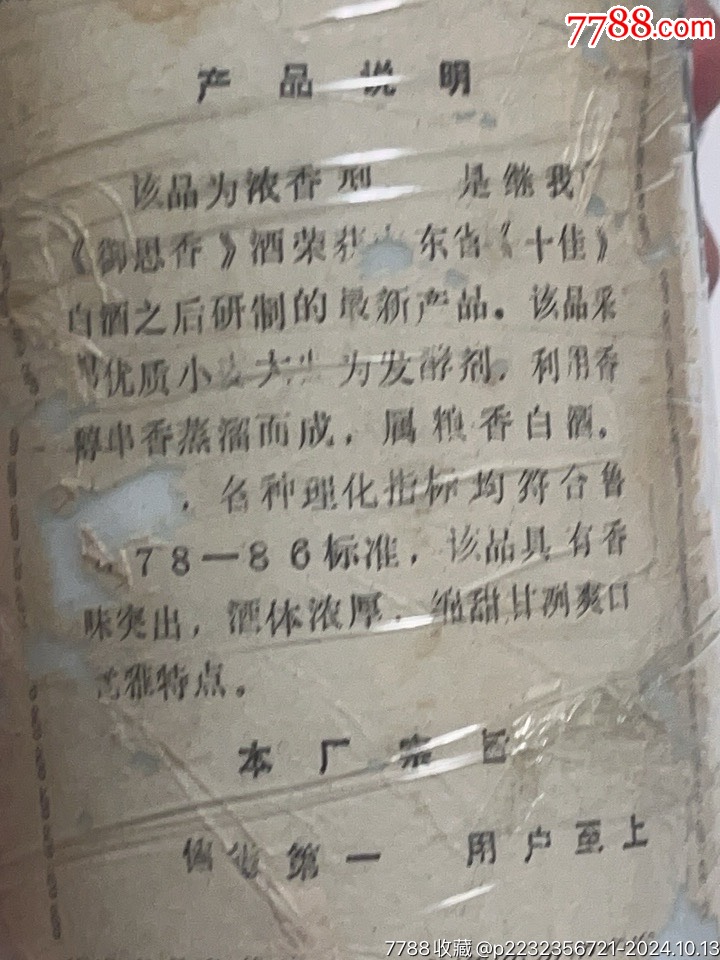 7788.com
产品说明
该品为浓香型 是继我
《御思香》酒荣获 东省《十佳》
白酒之后研制的最新产品。该品采
优质小麦大 为发酵剂，利用香
醇串香蒸溜而成，属粮香白酒。
，各种理化指标均符合鲁
78—86标准，该品具有香
味突出，酒体浓厚，绵甜甘冽爽口
雅特点。
本厂宗旨
第一 用户至上
7788收藏@p2232356721-2024.10.13